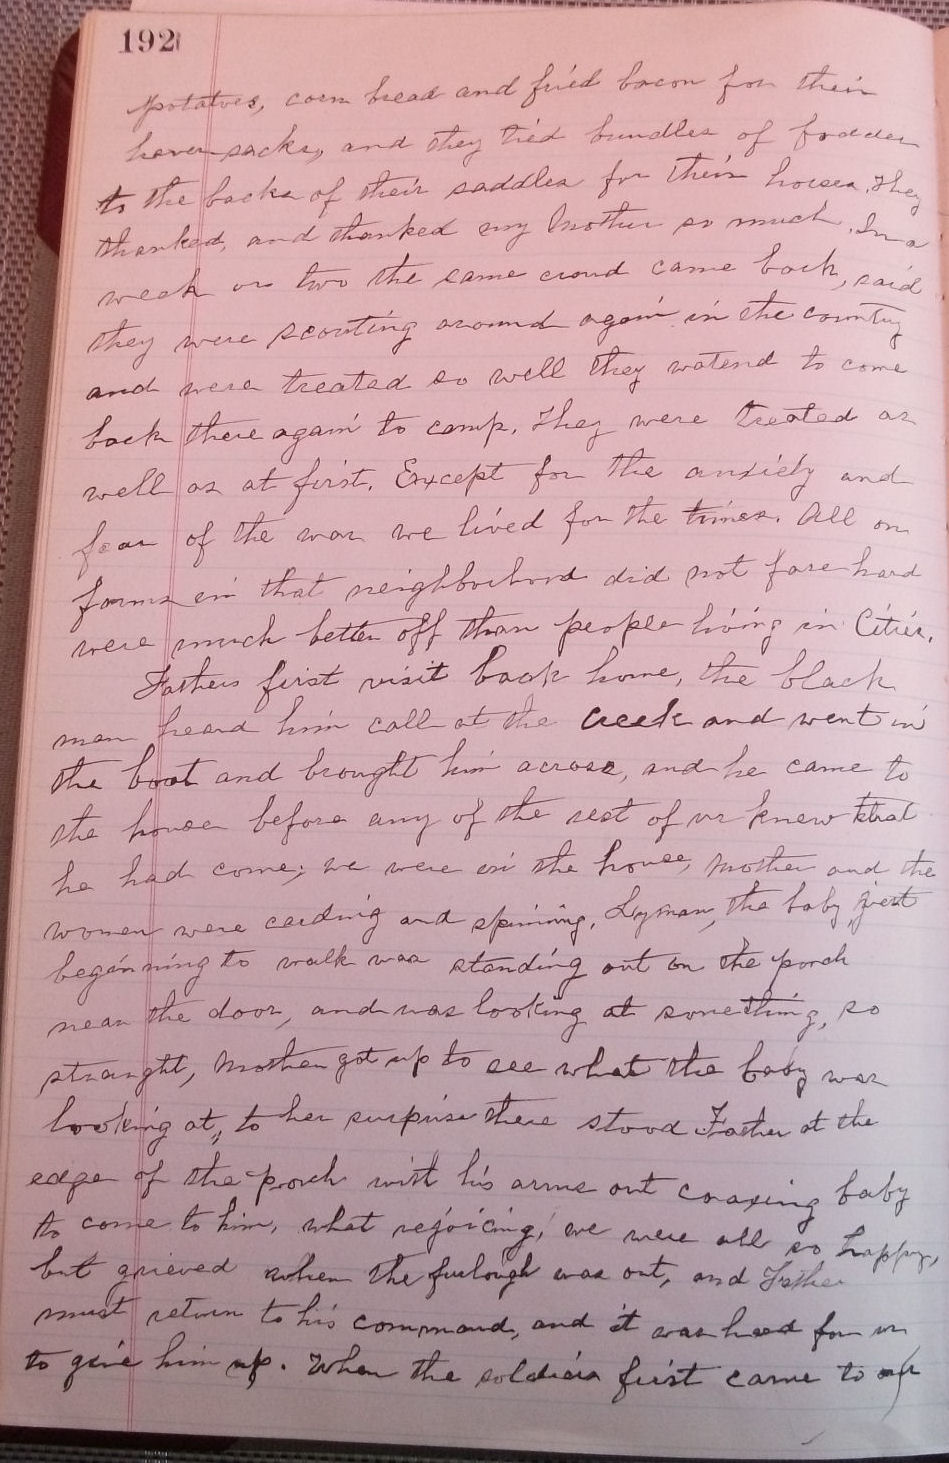 192
potatoes, corn bread and fried bacon for their
haversacks, and they tied bundles of fodder
to the backs of their saddles for their horses. They
thanked, and thanked my Mother so much. In a
week or two the same croud came back, said
they were scouting around again in the country
and were treated so well they watend to come
back there again to camp. They were treated as
well as at first. Except for the anxiety and
fear of the war we lived for the times. All on
farms in that neighborhood did not fare hard
were much better off than people living in Cities.
Fathers first visit back home, the black
man heard him call at the creek and went in
the boat and brought him across, and he came to
the house before any of the rest of us knew that
he had come; we were in the house, Mother and the
women were carding and spining. Lyman, the baby just
beginning to walk was standing out on the porch
near the door, and was looking at something, so
straight, Mother got up to see what the baby was
looking at, to her surprise there stood Father at the
edge of the porch with his arms out coaxing baby
to come to him, what rejoicing! we were all so happy,
but grieved when the furlough was out, and Father
must return to his command, and it was hard for us
to give him up. When the soldiers first came to our